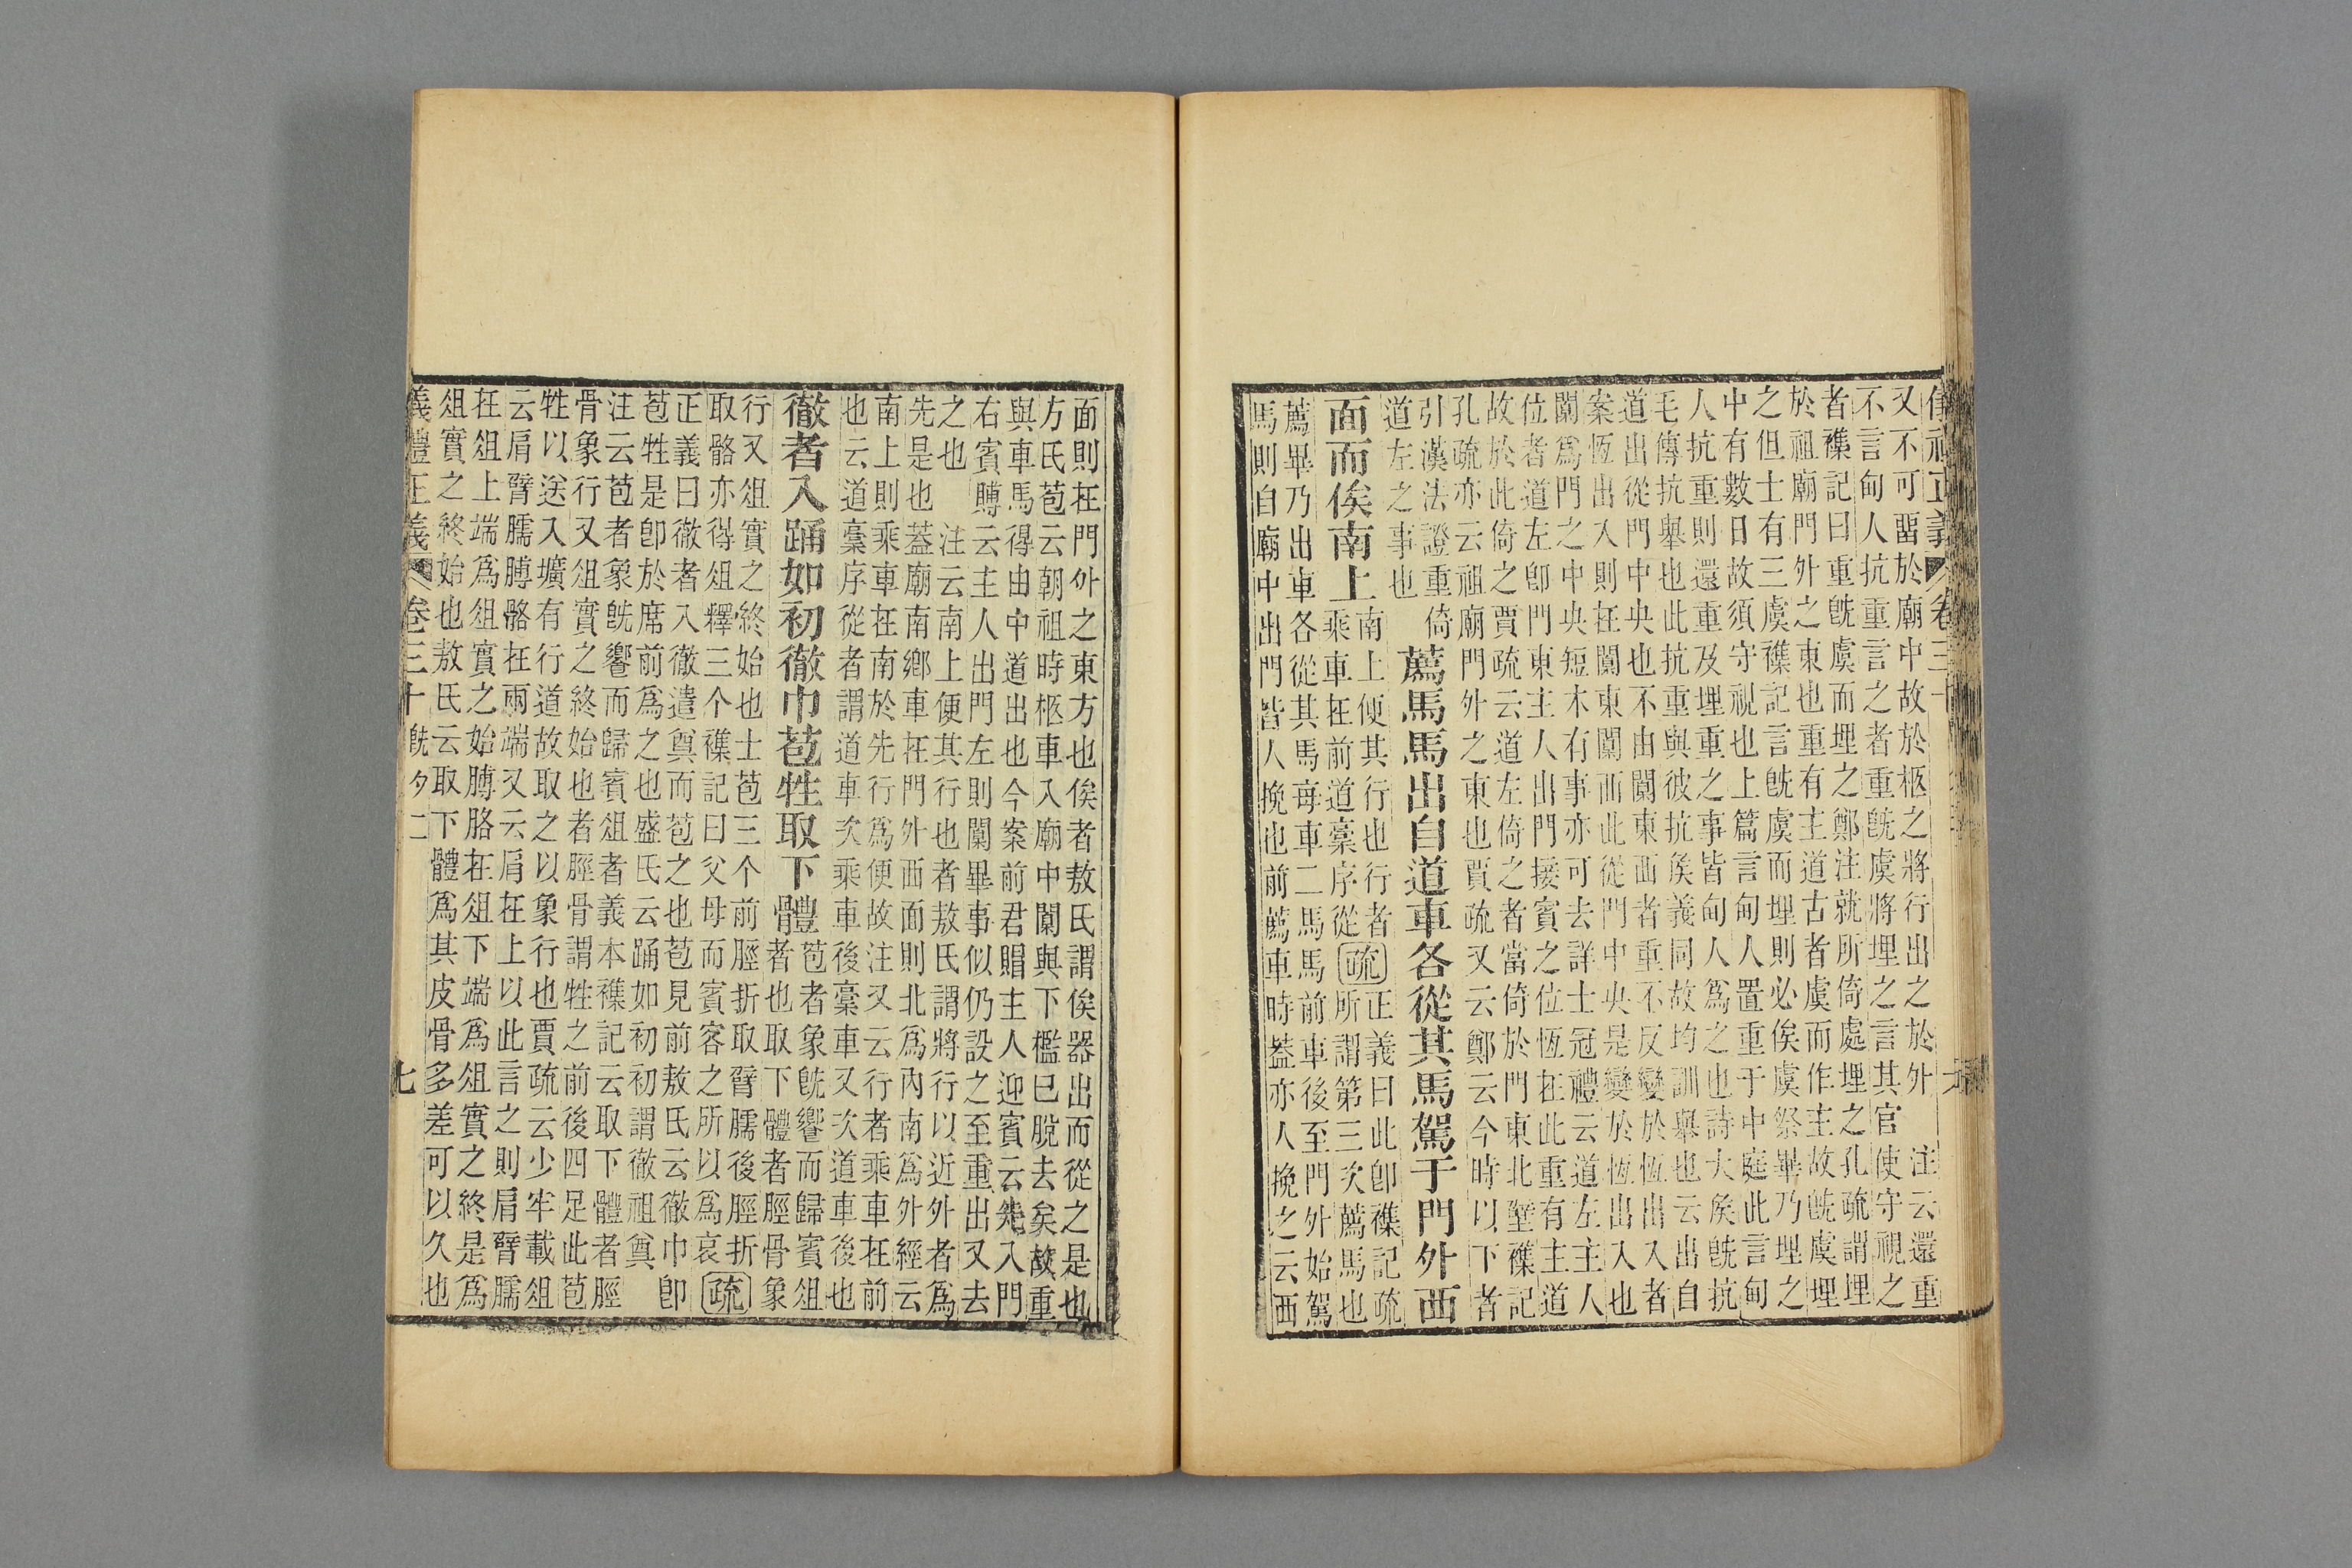 又不可畱於廟中故於柩之將行出之於外　注云還重
不言甸人抗重言之者重旣虞將埋之言其官使守視之
者襍記曰重旣虞而埋之鄭注就所倚處埋之孔疏謂埋
於祖廟門外之東也重有主道古者虞而作主故旣虞埋
之但士有三虞襍記言旣虞而埋則必俟虞祭畢乃埋之
中有數日故須守視也上篇言甸人置重于中庭此言甸
人抗重則還重及埋重之事皆甸人爲之也詩大矦旣抗
毛傳抗舉也此抗重與彼抗矦義同故均訓舉也云出自
道出從門中央也不由闑東西者重不反變於恆出入者
案恆出入則在闑東闑西此從門中央是變於恆出入也
闑爲門之中央短木有事亦可去詳士冠禮云道左主人
位者道左卽門東主人出門接賓之位恆在此重有主道
故於此倚之賈疏云道左倚之者當倚於門東北壁襍記
孔疏亦云祖廟門外之東也賈疏又云鄭云今時以下者
引漢法證重倚
道左之事也
薦馬馬出自道車各從其馬駕于門外西
面而俟南上
南上便其行也行者
乘車在前道槀序從
疏
正義曰此卽襍記疏
所謂第三次薦馬也
薦畢乃出車各從其馬每車二馬馬前車後至門外始駕
馬則自廟中出門皆人挽也前薦車時蓋亦人挽之云西
面則在門外之東方也俟者敖氏謂俟器出而從之是也
方氏苞云朝祖時柩車入廟中闑與下檻已脫去矣故重
與車馬得由中道出也今案前君賵主人迎賓云先入門
右賓賻云主人出門左則闑畢事似仍設之至重出又去
之也　注云南上便其行也者敖氏謂將行以近外者爲
先是也蓋廟南鄉車在門外西面則北爲內南爲外經云
南上則乘車在南於先行爲便故注又云行者乘車在前
也云道槀序從者謂道車次乘車後槀車又次道車後也
徹者入踊如初徹巾苞牲取下體
苞者象旣饗而歸賓俎
者也取下體者脛骨象
行又俎實之終始也士苞三个前脛折取臂臑後脛折
取骼亦得俎釋三个襍記曰父母而賓客之所以爲哀
疏
正義曰徹者入徹遣奠而苞之也苞見前敖氏云徹巾卽
苞牲是卽於席前爲之也盛氏云踊如初初謂徹祖奠
注云苞者象旣饗而歸賓俎者義本襍記云取下體者脛
骨象行又俎實之終始也者脛骨謂牲之前後四足此苞
牲以送入壙有行道故取之以象行也賈疏云少牢載俎
云肩臂臑膊骼在兩端又云肩在上以此言之則肩臂臑
在俎上端爲俎實之始膊胳在俎下端爲俎實之終是爲
俎實之終始也敖氏云取下體爲其皮骨多差可以久也
義禮正義　卷三十　旣夕二　七